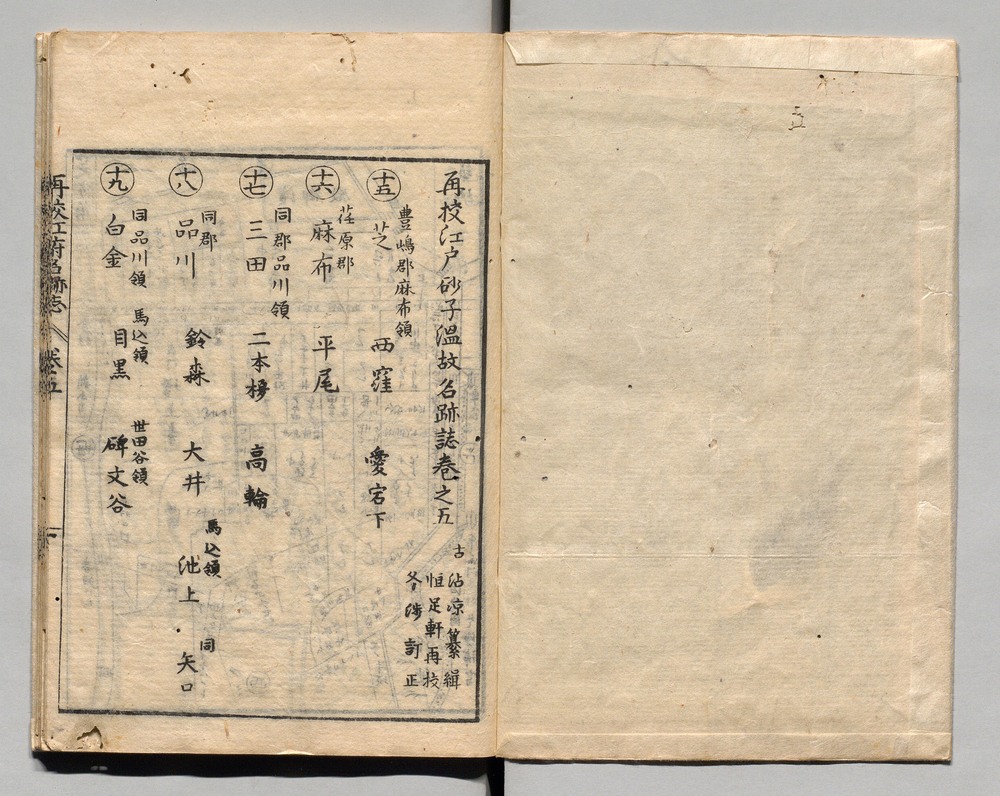 再校江戸砂子温故名跡誌巻之五
古
沾凉纂緝
恒足軒再校
冬渉訂正
豊嶋郡麻布領
十五 芝 西窪 愛宕下
荏原郡
十六 麻布 平尾
同郡品川領
十七 三田 二本榎 高輪
同郡 馬込領 同
十八 品川 鈴森 大井 池上 矢口
同品川領 馬込領 世田谷領
十九 白金 目黒 碑文谷
再校江府名跡志 巻五 一
五